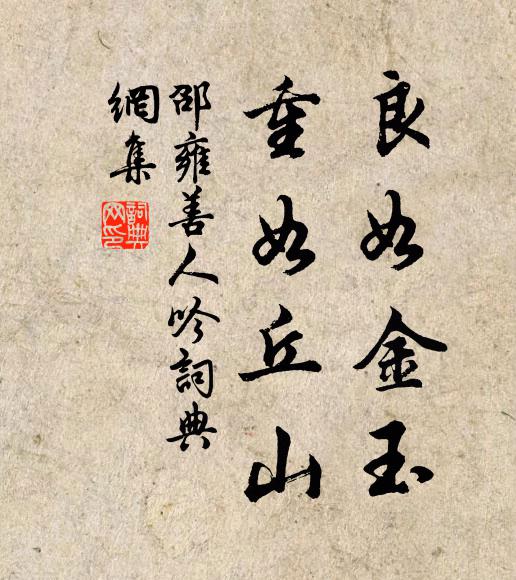 良如金玉
重如丘山
邵雍善人吟詞典
網集
詞典網印